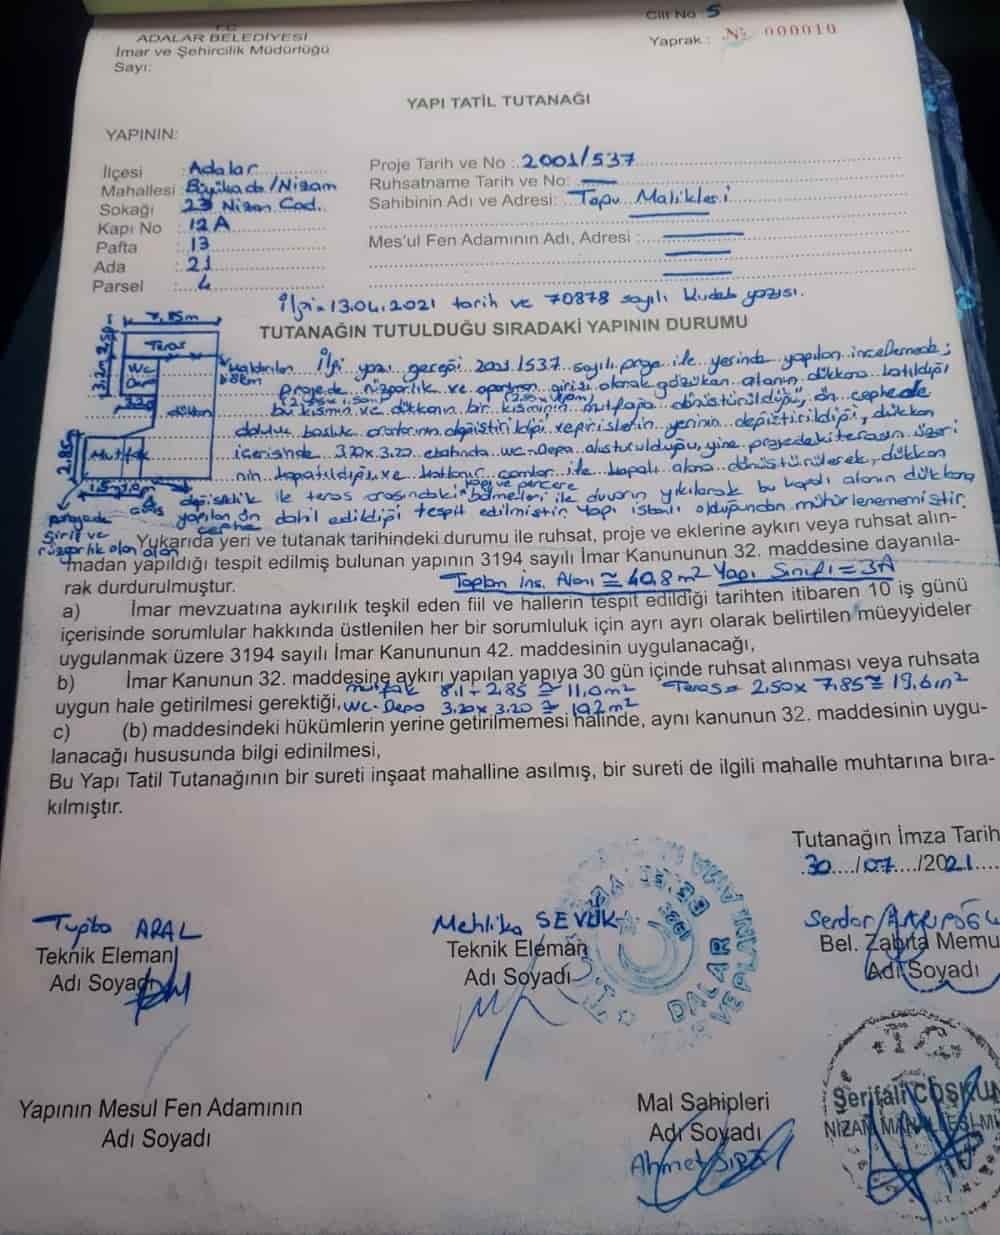 Cilt No : 5
T.C.
ADALAR BELEDİYESİ
İmar ve Şehircilik Müdürlüğü
Sayı:
Yaprak : № 000010
YAPI TATİL TUTANAĞI
YAPININ:
İlçesi : Adalar
Mahallesi : Büyükada/Nizam
Sokağı : 23 Nisan Cad.
Kapı No : 12A
Pafta : 13
Ada : 21
Parsel : 4
Proje Tarih ve No : 2001/537
Ruhsatname Tarih ve No: —
Sahibinin Adı ve Adresi: Tapu Malikleri
Mes'ul Fen Adamının Adı, Adresi :
İlgi = 13.04.2021 tarih ve 70878 sayılı Kudeb yazısı.
TUTANAĞIN TUTULDUĞU SIRADAKİ YAPININ DURUMU
7,85m
Teras
WC
Depo
3.20
dükkan
Mutfak
2.85
İlgi yazı gereği 2001/537 sayılı proje ile yerinde yapılan incelemede;
projede rüzgarlık ve apartman girişi olarak gözüken alanın dükkana katıldığı
bu kısmın ve dükkanın bir kısmının mutfağa dönüştürüldüğü, ön cephede
doluluk boşluk oranlarının değiştirildiği ve girişlerin yerinin değiştirildiği, dükkan
içerisinde 3.20x3.20 ebatında wc-Depo oluşturulduğu, yine projedeki terasın üzeri
nin kapatıldığı ve katlanır camlar ile kapalı alana dönüştürülerek, dükkan
kapı ve pencere
değişiklik ile teras arasındaki bölmeleri ile duvarın yıkılarak bu kapalı alanın dükkana
yapılan ön cephe
dahil edildiği tespit edilmiştir. Yapı iskanlı olduğundan mühürlenememiştir.
projede giriş ve
rüzgarlık olan alan
Yukarıda yeri ve tutanak tarihindeki durumu ile ruhsat, proje ve eklerine aykırı veya ruhsat alın-
madan yapıldığı tespit edilmiş bulunan yapının 3194 sayılı İmar Kanununun 32. maddesine dayanıla-
rak durdurulmuştur.
Toplam inş. Alanı ≅ 40,8 m² Yapı Sınıfı = 3A
a) İmar mevzuatına aykırılık teşkil eden fiil ve hallerin tespit edildiği tarihten itibaren 10 iş günü
içerisinde sorumlular hakkında üstlenilen her bir sorumluluk için ayrı ayrı olarak belirtilen müeyyideler
uygulanmak üzere 3194 sayılı İmar Kanununun 42. maddesinin uygulanacağı,
b) İmar Kanunun 32. maddesine aykırı yapılan yapıya 30 gün içinde ruhsat alınması veya ruhsata
mutfak 8.1+2.85 ≅ 11,0m² Teras= 2,50x7,85≅19,6m²
uygun hale getirilmesi gerektiği, WC-Depo 3.20x3.20 ≅ 10,2m²
c) (b) maddesindeki hükümlerin yerine getirilmemesi halinde, aynı kanunun 32. maddesinin uygu-
lanacağı hususunda bilgi edinilmesi,
Bu Yapı Tatil Tutanağının bir sureti inşaat mahalline asılmış, bir sureti de ilgili mahalle muhtarına bıra-
kılmıştır.
Tutanağın İmza Tarih
30/07/2021
Tuğba ARAL
Teknik Eleman
Adı Soyadı
Mehlika SEVÜK
Teknik Eleman
Adı Soyadı
Serdar
Bel. Zabıta Memu
Adı Soyadı
DALAR
Yapının Mesul Fen Adamının
Adı Soyadı
Mal Sahipleri
Adı Soyadı
Ahmet
T.C.
Şerifali COŞKU
NİZAM MAHALLESİ MU